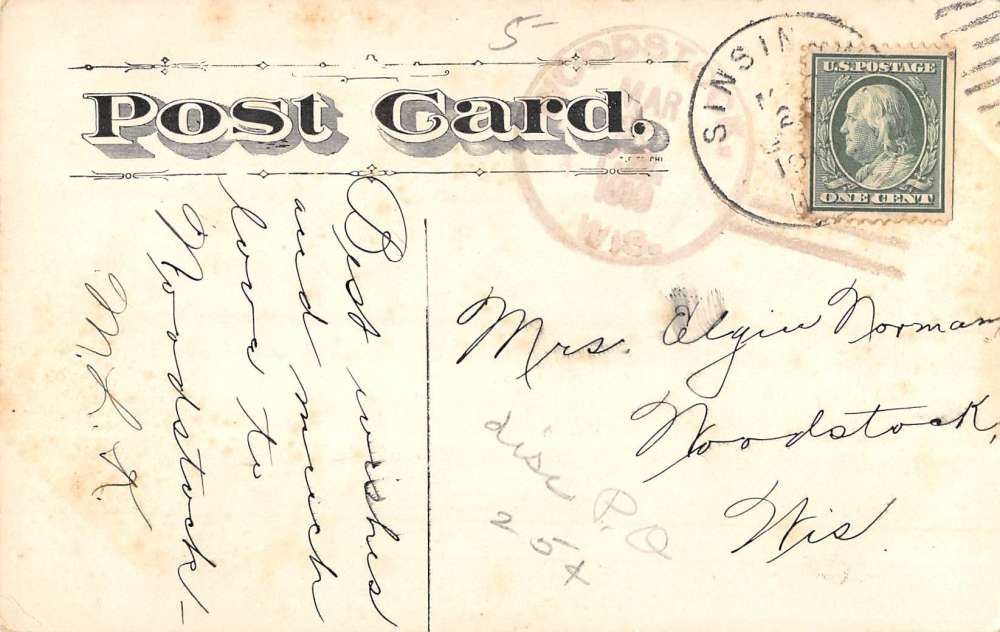 5
Post Card.
WOODSTOCK
MAR
WIS.
SINSIN
U.S. POSTAGE
ONE CENT
Best wishes
and much
love to
Woodstock—
Mrs. Elgin Norman
Woodstock,
Wis
disc P.O
25x